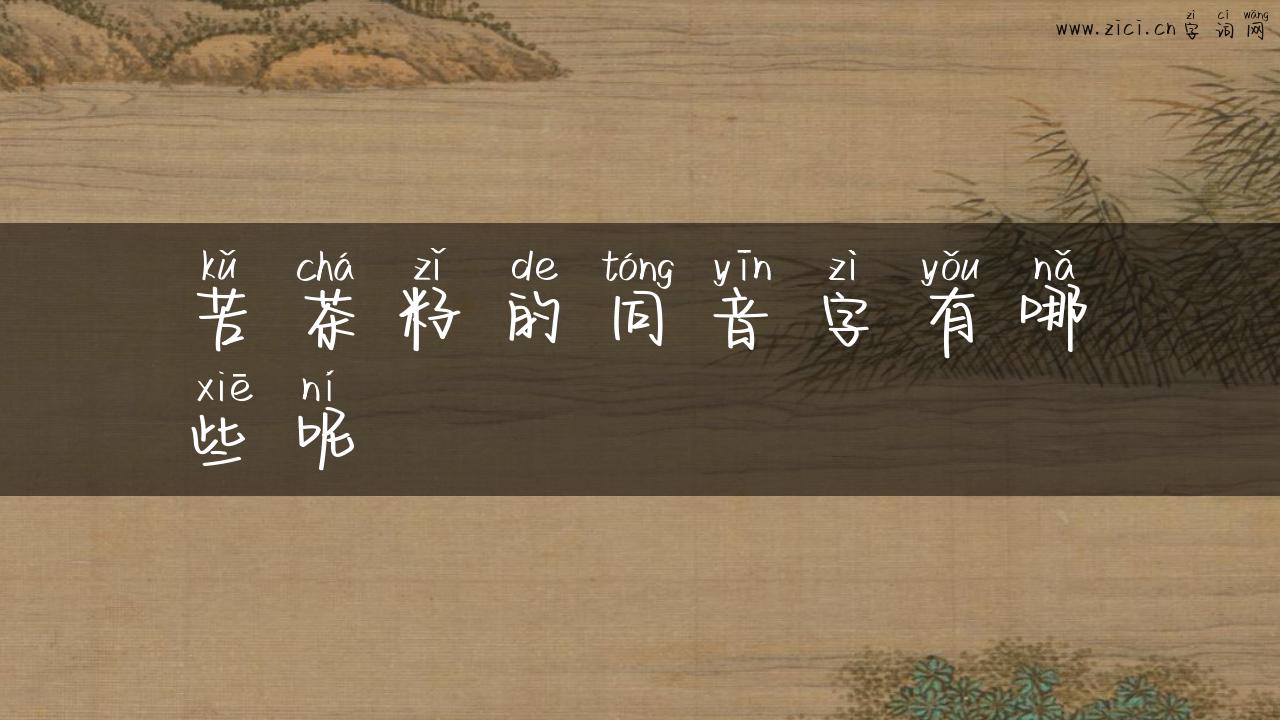 zì cí wǎng
www.zici.cn 字词网
kǔ chá zǐ de tóng yīn zì yǒu nǎ
苦茶籽的同音字有哪
xiē ní
些呢